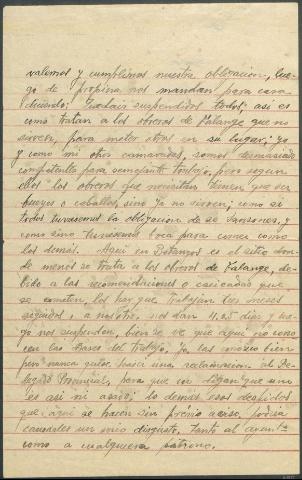 valemos y cumplimos nuestra obligacion, lue-
go de propina nos mandan para casa
diciendo; Quedais suspendidos todos; asi es
como tratan a los obreros de Falange que no
sirven, para meter otros en su lugar; yo
y como mi otros camaradas, somos demasiado
competentes para semejante trabajo, pero segun
ellos los obreros que necesitan tienen que ser
bueyes o caballos, sino ya no sirven; como si
todos tuviesemos la obligacion de ser Sansones, y
como sino tuviesemos boca para comer como
los demás. Aqui en Betanzos es el sitio don-
de menos se trata a los obreros de Falange, de-
bido a las recomendaciones o cacicadas que
se cometen, los hay que trabajan tres meses
seguidos, a nosotros nos dan 11.25 dias y lue-
go nos suspenden, bien se ve que aqui no cono-
cen las Bases del Trabajo, yo las conozco bien
pero nunca quise hacer una reclamacion al De-
legado Provincial, para que no digan que uno
es asi ni asado; lo demas esos despidos
que aqui se hacen sin prévio aviso, podria
causarles un serio disgusto, tanto al ayunt.to
como a cualquiera patrono.